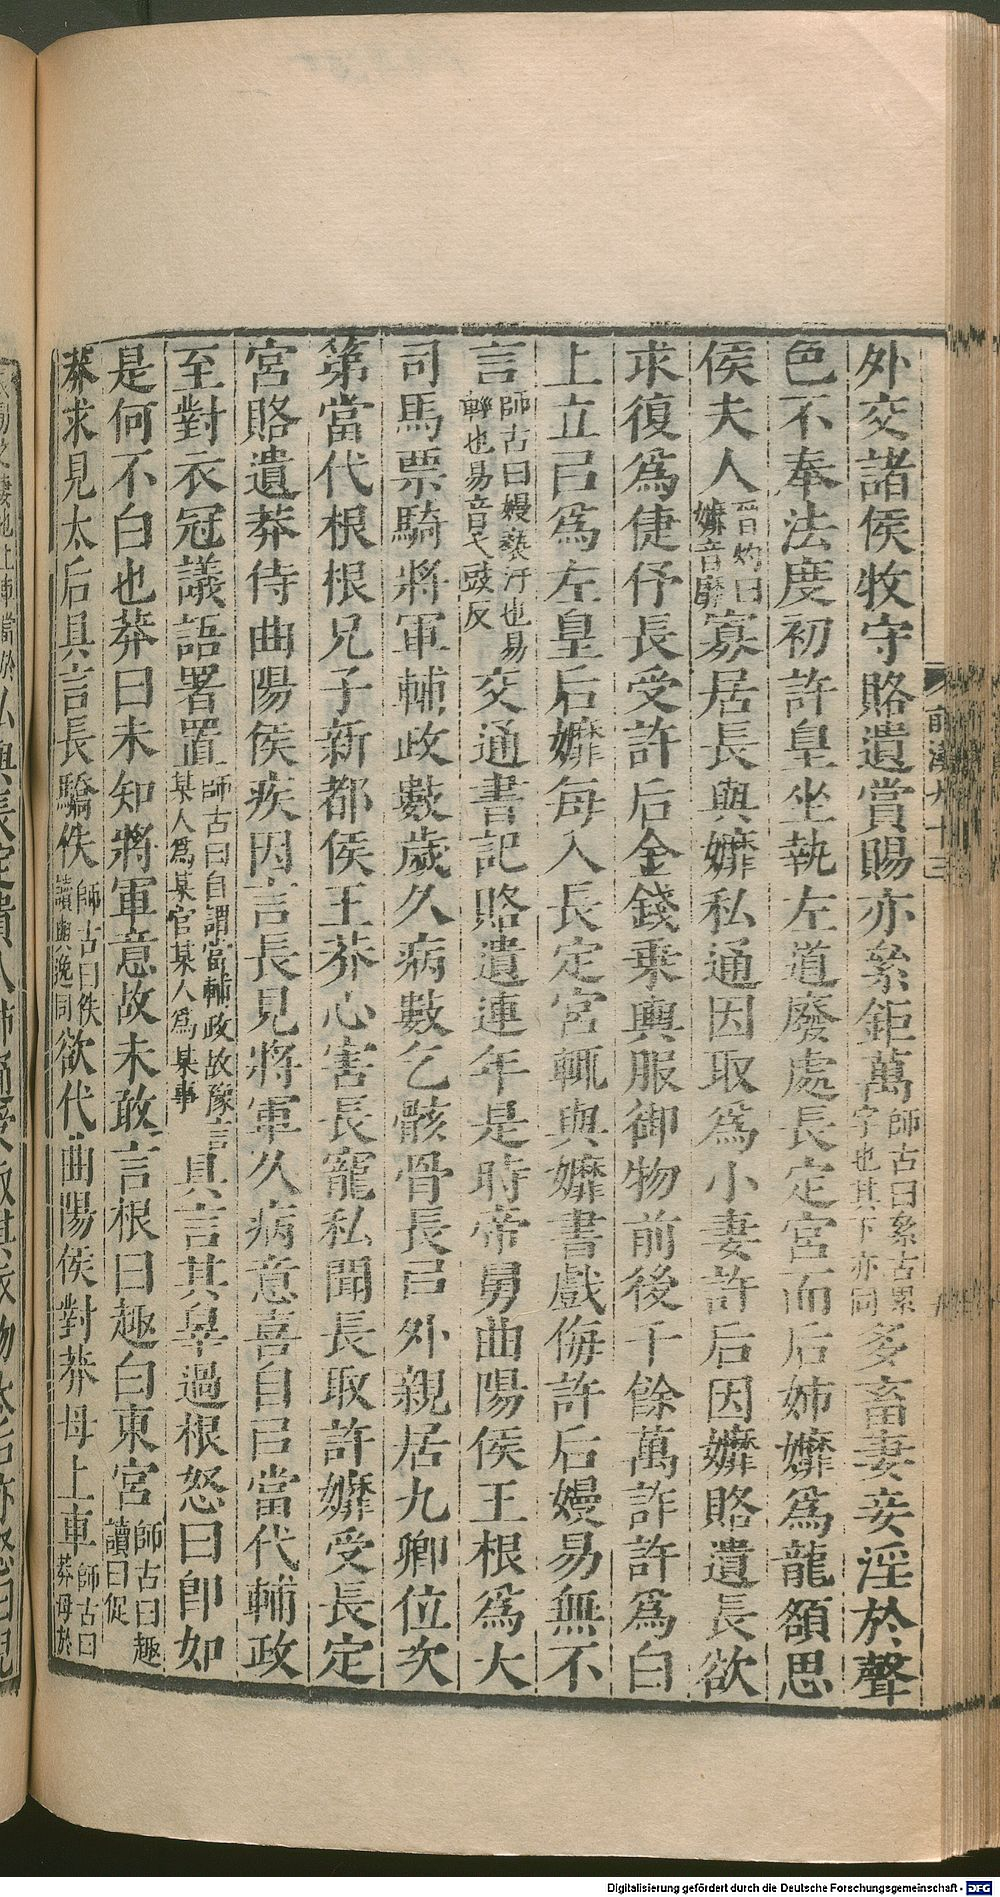 外交諸侯牧守賂遺賞賜亦絫鉅萬師古曰絫古累字也其下亦同多畜妻妾淫於聲
色不奉法度初許皇后坐執左道廢處長定宮而后姊㜷爲龍頟思
侯夫人晉灼曰㜷音靡寡居長與㜷私通因取爲小妻許后因㜷賂遺長欲
求復爲倢伃長受許后金錢乘輿服御物前後千餘萬詐許爲白
上立㠯爲左皇后㜷每入長定宮輒與㜷書戲侮許后嫚易無不
言師古曰嫚褻汙也易輕也易音弋豉反交通書記賂遺連年是時帝舅曲陽侯王根爲大
司馬票騎將軍輔政數歲久病數乞骸骨長㠯外親居九卿位次
第當代根根兄子新都侯王莽心害長寵私聞長取許㜷受長定
宮賂遺莽侍曲陽侯疾因言長見將軍久病意喜自㠯當代輔政
至對衣冠議語署置師古曰自謂當輔政故豫言某人爲某官某人爲某事具言其辠過根怒曰卽如
是何不白也莽曰未知將軍意故未敢言根曰趣白東宮師古曰趣讀曰促
莽求見太后具言長驕佚師古曰佚讀與逸同欲代曲陽侯對莽母上車師古曰莽母於
前漢九十三
Digitalisierung gefördert durch die Deutsche Forschungsgemeinschaft - DFG